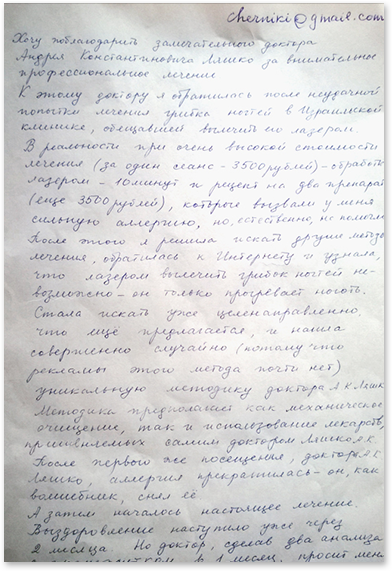 cherniki@gmail.com
Хочу поблагодарить замечательного доктора
Андрея Константиновича Ляшко за внимательное
профессиональное лечение
К этому доктору я обратилась после неудачной
попытки лечения грибка ногтей в Израильской
клинике, обещавшей вылечить его лазером
В реальности при очень высокой стоимости
лечения (за один сеанс - 3500 рублей) - обработка
лазером - 10 минут и рецепт на два препарата
(еще 3500 рублей), которые вызвали у меня
сильную аллергию, но, естественно, не помогли
После этого я решила искать другие методы
лечения, обратилась к Интернету и узнала,
что лазером вылечить грибок ногтей не-
возможно - он только прогревает ноготь.
Стала искать уже целенаправленно,
что ещё предлагается, и нашла
совершенно случайно (потому что
рекламы этого метода почти нет)
уникальную методику доктора А К Ляшко
Методика предполагает как механическое
очищение, так и использование лекарств,
применяемых самим доктором Ляшко А.К.
После первого же посещения, доктора А К
Ляшко, аллергия прекратилась - он, как
волшебник, снял её
А затем началось настоящее лечение.
Выздоровление наступило уже через
2 месяца. Но доктор, сделав два анализа
в 1 месяц, просит меня